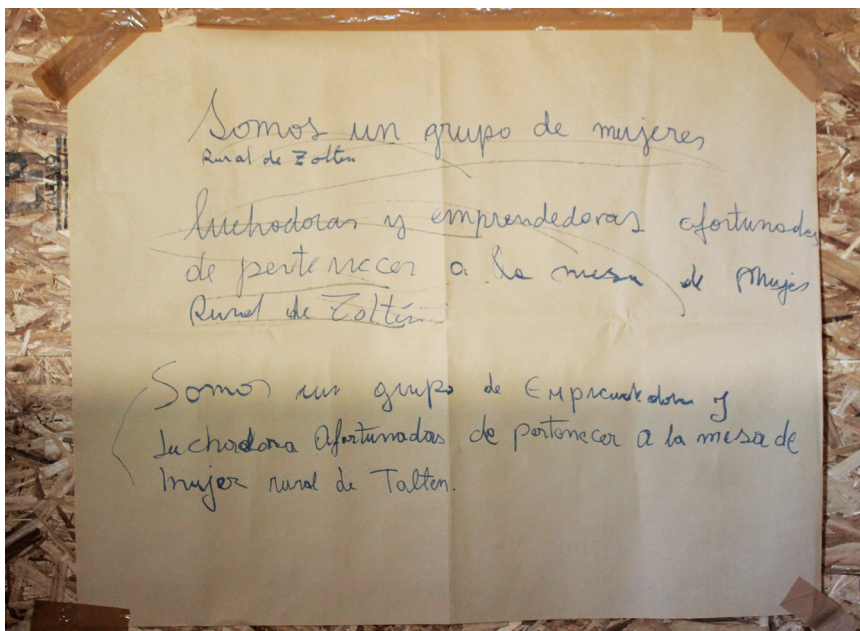 Somos un grupo de mujeres
Rural de Zolten
luchadoras y emprendedoras afortunadas
de pertenecer a la mesa de Mujer
Rural de Zoltén
Somos un grupo de Emprendedora y
Luchadora Afortunadas de pertenecer a la mesa de
Mujer rural de Talten.